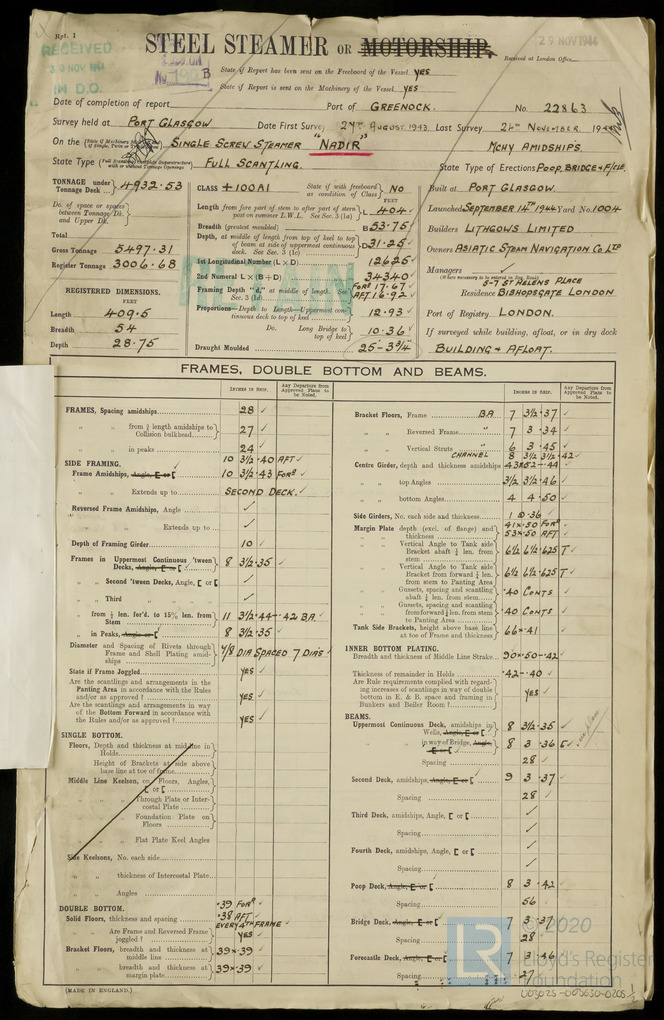 Rpt. 1
RECEIVED
30 NOV 1944
IN D.O.
29 NOV 1944
STEEL STEAMER OR MOTORSHIP.
Received at London Office
State if Report has been sent on the Freeboard of the Vessel YES
State if Report is sent on the Machinery of the Vessel. YES
Date of completion of report
Port of GREENOCK.
No. 22863
Survey held at PORT GLASGOW
Date First Survey 24TH AUGUST 1943. Last Survey 24TH NOVEMBER 1944
On the SINGLE SCREW STEAMER "NADIR" MCHY AMIDSHIPS.
State Type FULL SCANTLING.
State Type of Erections POOP, BRIDGE & F/CLE.
TONNAGE under Tonnage Deck 4932.53
Do. of space or spaces between Tonnage Dk. and Upper Dk.
Total
Gross Tonnage 5497.31
Register Tonnage 3006.68
REGISTERED DIMENSIONS.
FEET
Length 409.5
Breadth 54
Depth 28.75
CLASS +100A1
State if with freeboard as condition of Class NO
FEET
Length from fore part of stem to after part of stern post on summer L.W.L. See Sec. 3 (1a) L 404
Breadth (greatest moulded) B 53.75
Depth, at middle of length from top of keel to top of beam at side of uppermost continuous deck. See Sec. 3 (1c) D 31.25
1st Longitudinal Number (L × D) 12625
2nd Numeral L × (B + D) 34340
Framing Depth "d," at middle of length. See Sec. 3 (1d) FORD 17.67
AFT 16.92
Proportions—Depth to Length—Uppermost continuous deck to top of keel 12.93
Do. Long Bridge to top of keel 10.36
Draught Moulded 25'-3¾"
Built at PORT GLASGOW.
Launched SEPTEMBER 14TH 1944 Yard No. 1004
Builders LITHGOWS LIMITED
Owners ASIATIC STEAM NAVIGATION CO LTD
Managers
(Where necessary to be entered in Reg. Book)
Residence 5-7 ST HELENS PLACE
BISHOPSGATE LONDON
Port of Registry LONDON.
If surveyed while building, afloat, or in dry dock
BUILDING & AFLOAT.
FRAMES, DOUBLE BOTTOM AND BEAMS.
INCHES IN SHIP.
Any Departure from Approved Plans to be Noted.
FRAMES, Spacing amidships 28 ✓
" " from ⅗ length amidships to Collision bulkhead 27 ✓
" " in peaks 24 ✓
SIDE FRAMING. 10 3½ .40 AFT ✓
Frame Amidships, Angle, E or [ 10 3½ .43 FORD ✓
" " Extends up to SECOND DECK. ✓
Reversed Frame Amidships, Angle ✓
" " Extends up to ✓
Depth of Framing Girder 10 ✓
Frames in Uppermost Continuous 'tween Decks, Angle, E or [ 8 3½ .35 ✓
" Second 'tween Decks, Angle, [ or [ ✓
" Third " " " ✓
" from ⅕ len. for'd. to 15% len. from Stem 11 3½ .44-.42 BA ✓
" in Peaks, Angle or [ 8 3½ .35 ✓
Diameter and Spacing of Rivets through Frame and Shell Plating amidships 7/8 DIA SPACED 7 DIAS ✓
State if Frame Joggled YES ✓
Are the scantlings and arrangements in the Panting Area in accordance with the Rules and/or as approved ? YES ✓
Are the scantlings and arrangements in way of the Bottom Forward in accordance with the Rules and/or as approved ? YES ✓
SINGLE BOTTOM.
Floors, Depth and thickness at mid line in Holds
Height of Brackets at side above base line at toe of frame
Middle Line Keelson, on Floors, Angles, [ or [
" " Through Plate or Intercostal Plate
" " Foundation Plate on Floors
" " Flat Plate Keel Angles
Side Keelsons, No. each side
" " thickness of Intercostal Plate
" " Angles
DOUBLE BOTTOM. .39 FORD
Solid Floors, thickness and spacing .38 AFT
EVERY 4TH FRAME
" " Are Frame and Reversed Frame joggled ? YES ✓
Bracket Floors, breadth and thickness at middle line 39×.39 ✓
" " breadth and thickness at margin plate 39×.39 ✓
(MADE IN ENGLAND.)
INCHES IN SHIP.
Any Departure from Approved Plans to be Noted.
Bracket Floors, Frame BA 7 3½ .37 ✓
" " Reversed Frame " 7 3 .34 ✓
" " Vertical Struts " 6 3 .45 ✓
CHANNEL 8 3½ 3½ .42 ✓
Centre Girder, depth and thickness amidships 43×.52-.44 ✓
" " top Angles 3½ 3½ .46 ✓
" " bottom Angles 4 4 .50 ✓
Side Girders, No. each side and thickness 1 @ .36 ✓
Margin Plate depth (excl. of flange) and thickness 41×.50 FORD
53×.50 AFT ✓
" " Vertical Angle to Tank side Bracket abaft ¼ len. from stem 6½ 6½ .625 T ✓
" " Vertical Angle to Tank side Bracket from forward ¼ len. from stem to Panting Area 6½ 6½ .625 T ✓
" " Gussets, spacing and scantling abaft ¼ len. from stem .40 CONTS ✓
" " Gussets, spacing and scantling forward ¼ len. from stem to Panting Area .40 CONTS ✓
Tank Side Brackets, height above base line at toe of Frame and thickness 66×.41 ✓
INNER BOTTOM PLATING.
Breadth and thickness of Middle Line Strake 90×.50-.42 ✓
Thickness of remainder in Holds .42-.40 ✓
Are Rule requirements complied with regarding increases of scantlings in way of double bottom in E. & B. space and framing in Bunkers and Boiler Room ? YES ✓
BEAMS.
Uppermost Continuous Deck, amidships in Wells, Angle, E or [ 8 3½ .35 ✓
" " in way of Bridge, Angle, E or [ 8 3 .36 [ ✓
Spacing 28 ✓
Second Deck, amidships, Angle, E or [ 9 3 .37 ✓
Spacing 28 ✓
Third Deck, amidships, Angle, [ or [ ✓
Spacing ✓
Fourth Deck, amidships, Angle, [ or [ ✓
Spacing ✓
Poop Deck, Angle, E or [ 8 3 .42 ✓
Spacing 56 ✓
Bridge Deck, Angle, E or [ 7 3 .37 ✓
Spacing 28 ✓
Forecastle Deck, Angle, E or [ 7 3 .46 ✓
Spacing 27 ✓
LR
© 2020
Lloyd's Register
Foundation
003025-003030-0205 ½